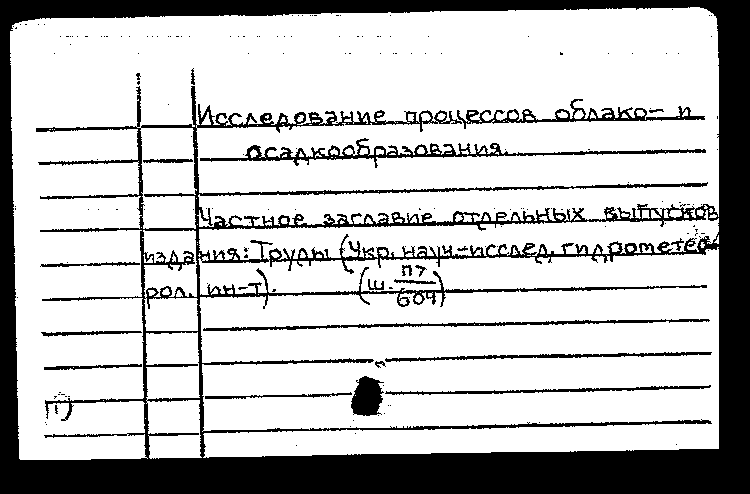 Исследование процессов облако- и
осадкообразования.
Частное заглавие отдельных выпусков
издания: Труды (Укр. науч.-исслед. гидрометео-
рол. ин-т). (ш. П7/604)